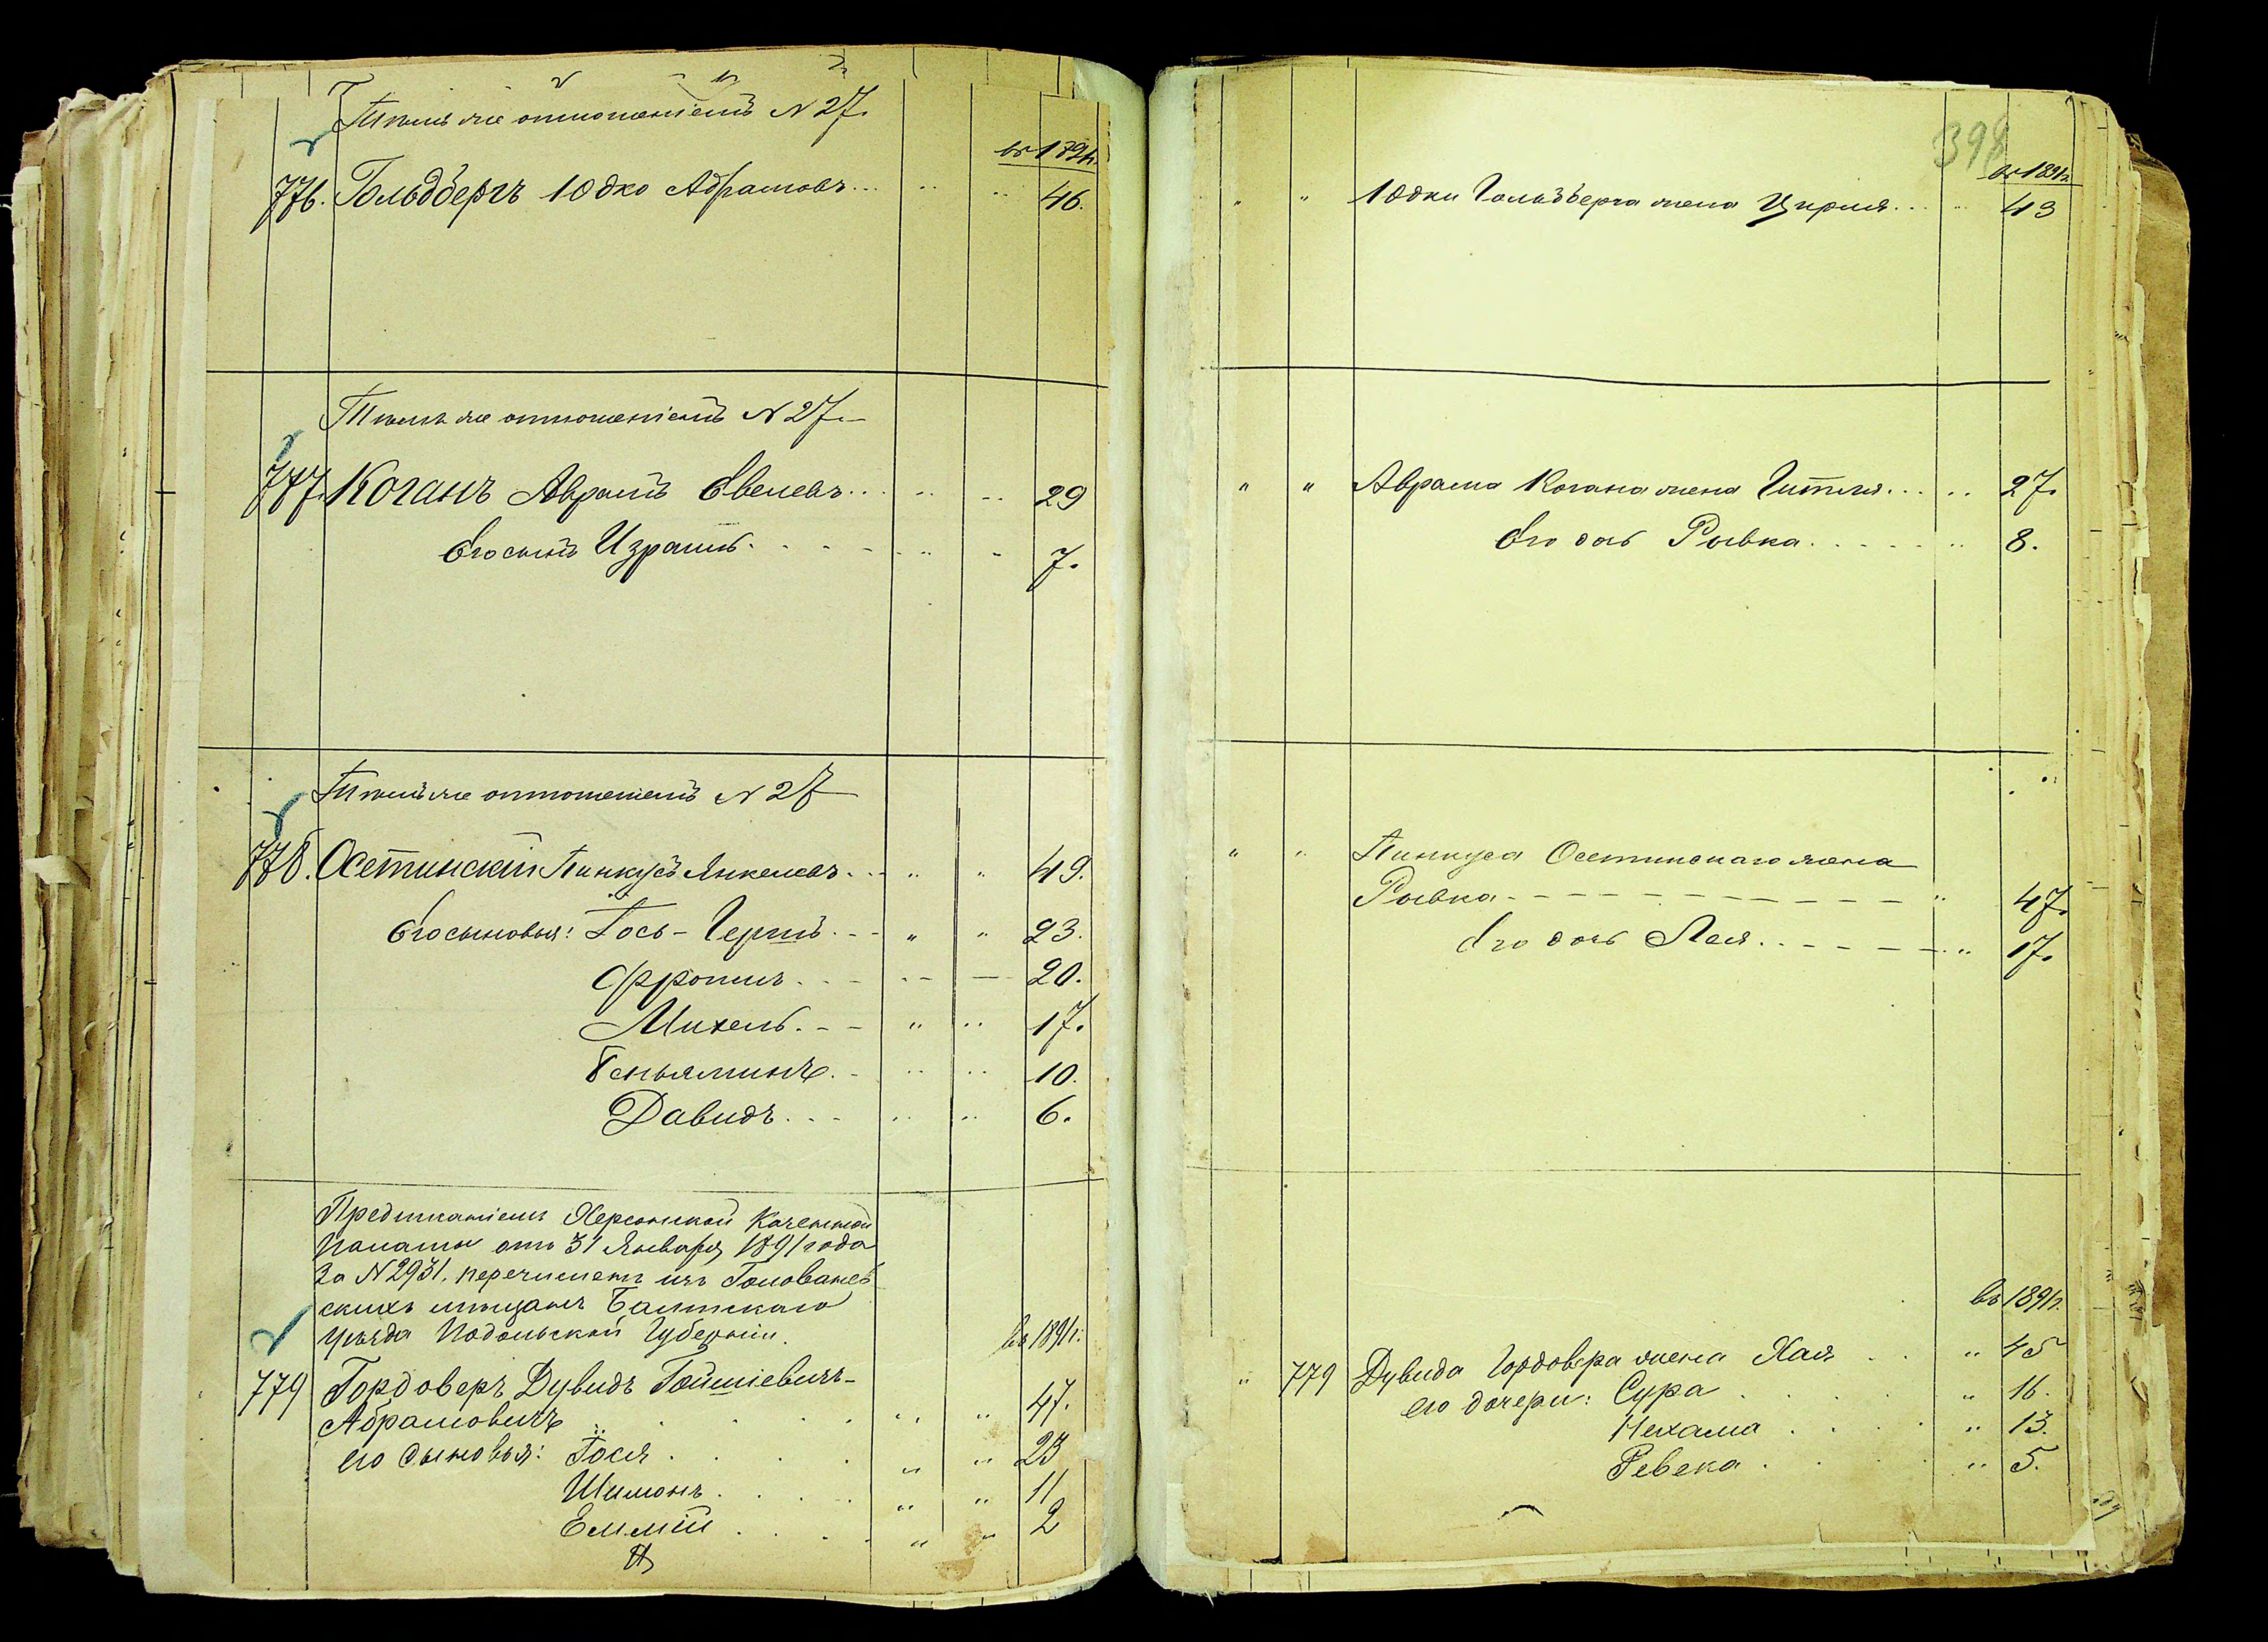 Тѣмъ же отношеніемъ № 27.
въ 1891г.
776. Гольдбергъ Юдко Абрамовъ... " " 46.
Тѣмъ же отношеніемъ № 27.
777. Коганъ Аврамъ Евелевъ... " " 29
Его сынъ Израиль. " " 7.
Тѣмъ же отношеніемъ № 27
778. Осетинскій Пинкусъ Янкелевъ. " " 49.
Его сыновья: Іось-Гершъ. " " 23.
Фроимъ. 20.
Михель. " " 17.
Беньяминъ. " " 10.
Давидъ. " " 6.
Предписаніемъ Херсонской Казенной
Палаты отъ 31 Января 1891 года
за № 2931. перечисленъ изъ Голованев
скихъ мѣщанъ Балтскаго
уѣзда Подольской Губерніи.
въ 1891г.
779 Гордоверъ Дувидъ
Абрамовичъ " " 47.
его сыновья: Іося " " 23
Шимонъ " " 11
" " 2
398
въ 1891г.
" " Юдки Гольдберга жена Цирля... " 43
" " Аврама Когана жена Гитля... " 27.
Его дочь Ривка. " 8.
" " Пинкуса Осетинскаго жена
Ривка " 47.
Его дочь Лея. " 17.
въ 1891г.
" 779 Дувида Гордовера жена Хая " 45
его дочери: Сура " 16.
Нехама " 13.
Ревека " 5.